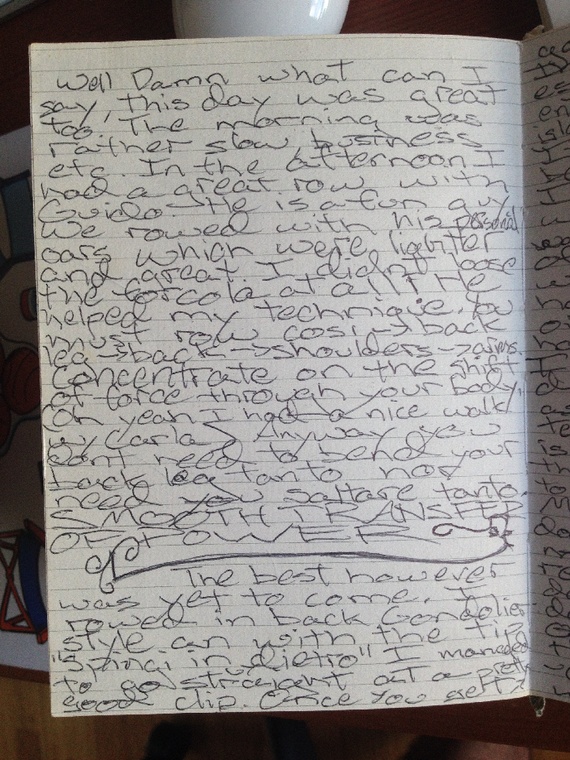 Well Damn what can I
say, this day was great
too. The morning was
rather slow business
etc. In the afternoon I
had a great row with
Guido. He is a fun guy,
We rowed with his personal
oars which were lighter
and great I didn't loose
the forcola at all! He
helped my technique. You
must row cosi->back
leg->back->shoulders->arms.
Concentrate on the shift
of force through your body,
Oh yeah I had a nice walk
w/ Carla Anyway you
don't need to bend your
back leg tanto nor
need you saltare tanto.
SMOOTH TRANSFER
OF POWER
The best however
was yet to come. I
rowed in back Gondolier
style an with the tip
"spingi in dietro" I managed
to go straight at a pretty
good clip. Once you get